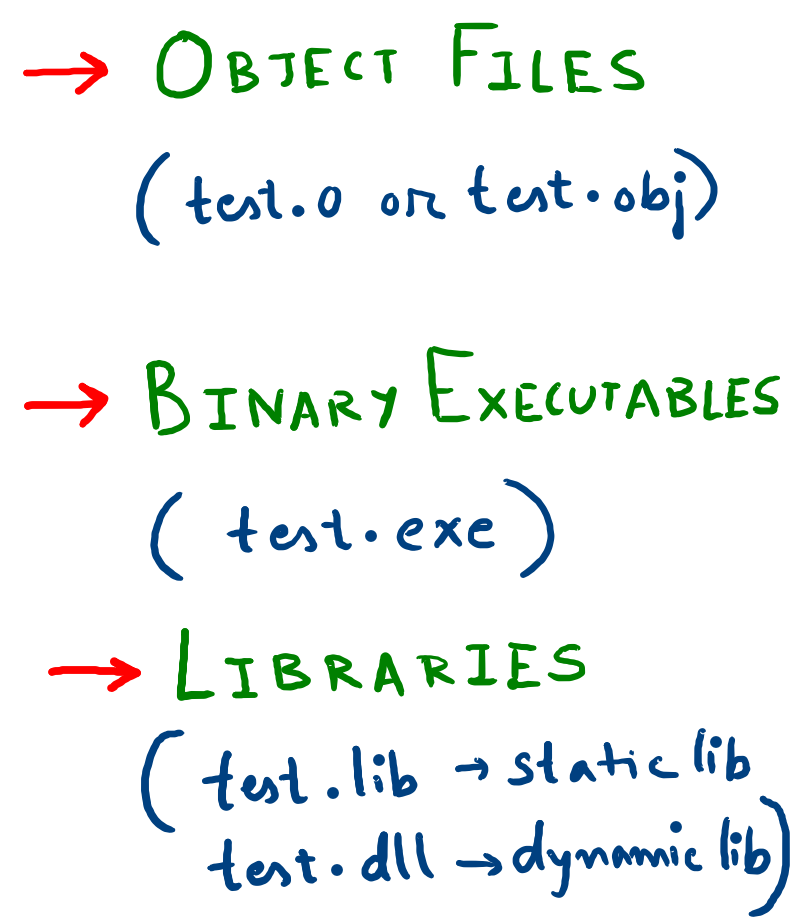 → OBJECT FILES
(test.o or test.obj)
→ BINARY EXECUTABLES
(test.exe)
→ LIBRARIES
(test.lib → static lib
test.dll → dynamic lib)